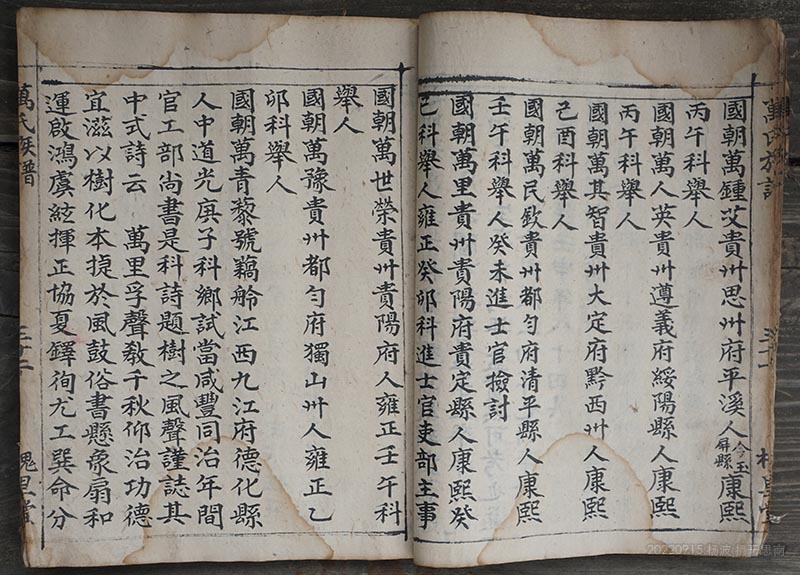 國朝萬鍾艾貴州思州府平溪人今玉屏縣康熙
丙午科舉人
國朝萬人英貴州遵義府綏陽縣人康熙
丙午科舉人
國朝萬其智貴州大定府黔西州人康熙
己酉科舉人
國朝萬民欽貴州都勻府清平縣人康熙
壬午科舉人癸未進士官檢討
國朝萬里貴州貴陽府貴定縣人康熙癸
己科舉人雍正癸卯科進士官吏部主事
國朝萬世榮貴州貴陽府人雍正壬午科
舉人
國朝萬豫貴州都勻府獨山州人雍正乙
卯科舉人
國朝萬青藜號藕舲江西九江府德化縣
人中道光庚子科鄉試當咸豐同治年間
官工部尚書是科詩題樹之風聲謹誌其
中式詩云 萬里孚聲教千秋仰治功德
宜滋以樹化本捷於風鼓俗書懸象扇和
運啟鴻虞絃揮正協夏鐸徇尤工巽命分
萬氏族譜
三十二
槐里堂
三十一
20220915 杨波 摄于思南